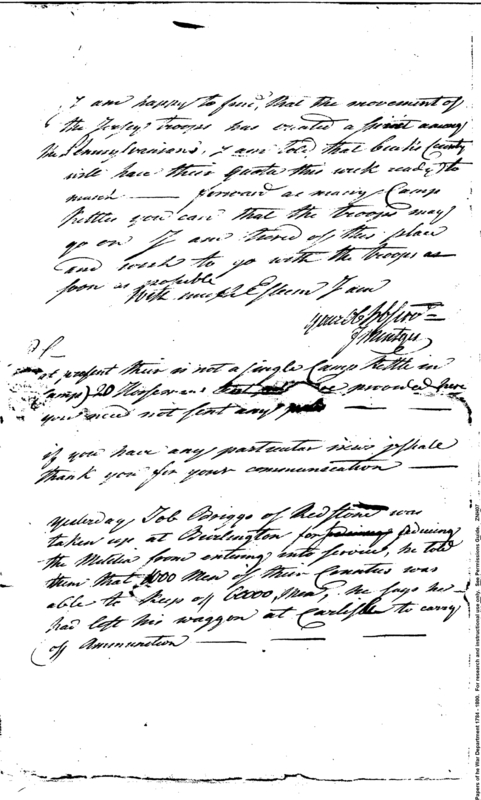 I am happy to find, that the movement of
the Jersey troops has created a spirit among
the Pennsylvanians. I am told that Bucks County
will have their quota this week ready to
march — forward as many Camp
Kettles you can that the troops may
go on I am tired of this place
and wish to go with the troops as
soon as possible
With much Esteem I am
your
J Huntger
PS
at present their is not a single Camp Kettle in
Camp, 20 be procured here
you need not sent any —
if you have any particular news I shall
thank you for your communication —
Yesterday Job Briggs of Redstone was
taken up at Burlington for seducing
the Militia from entering into service, he told
them that 1000 Men of their Counties was
able to keep off 6000 Men, he says he
had left his waggon at Carlisle to carry
off Ammunition — — —
Papers of he War Department 1784 - 1800. For research and instructional use only. See Permissions Guide. ZNH07